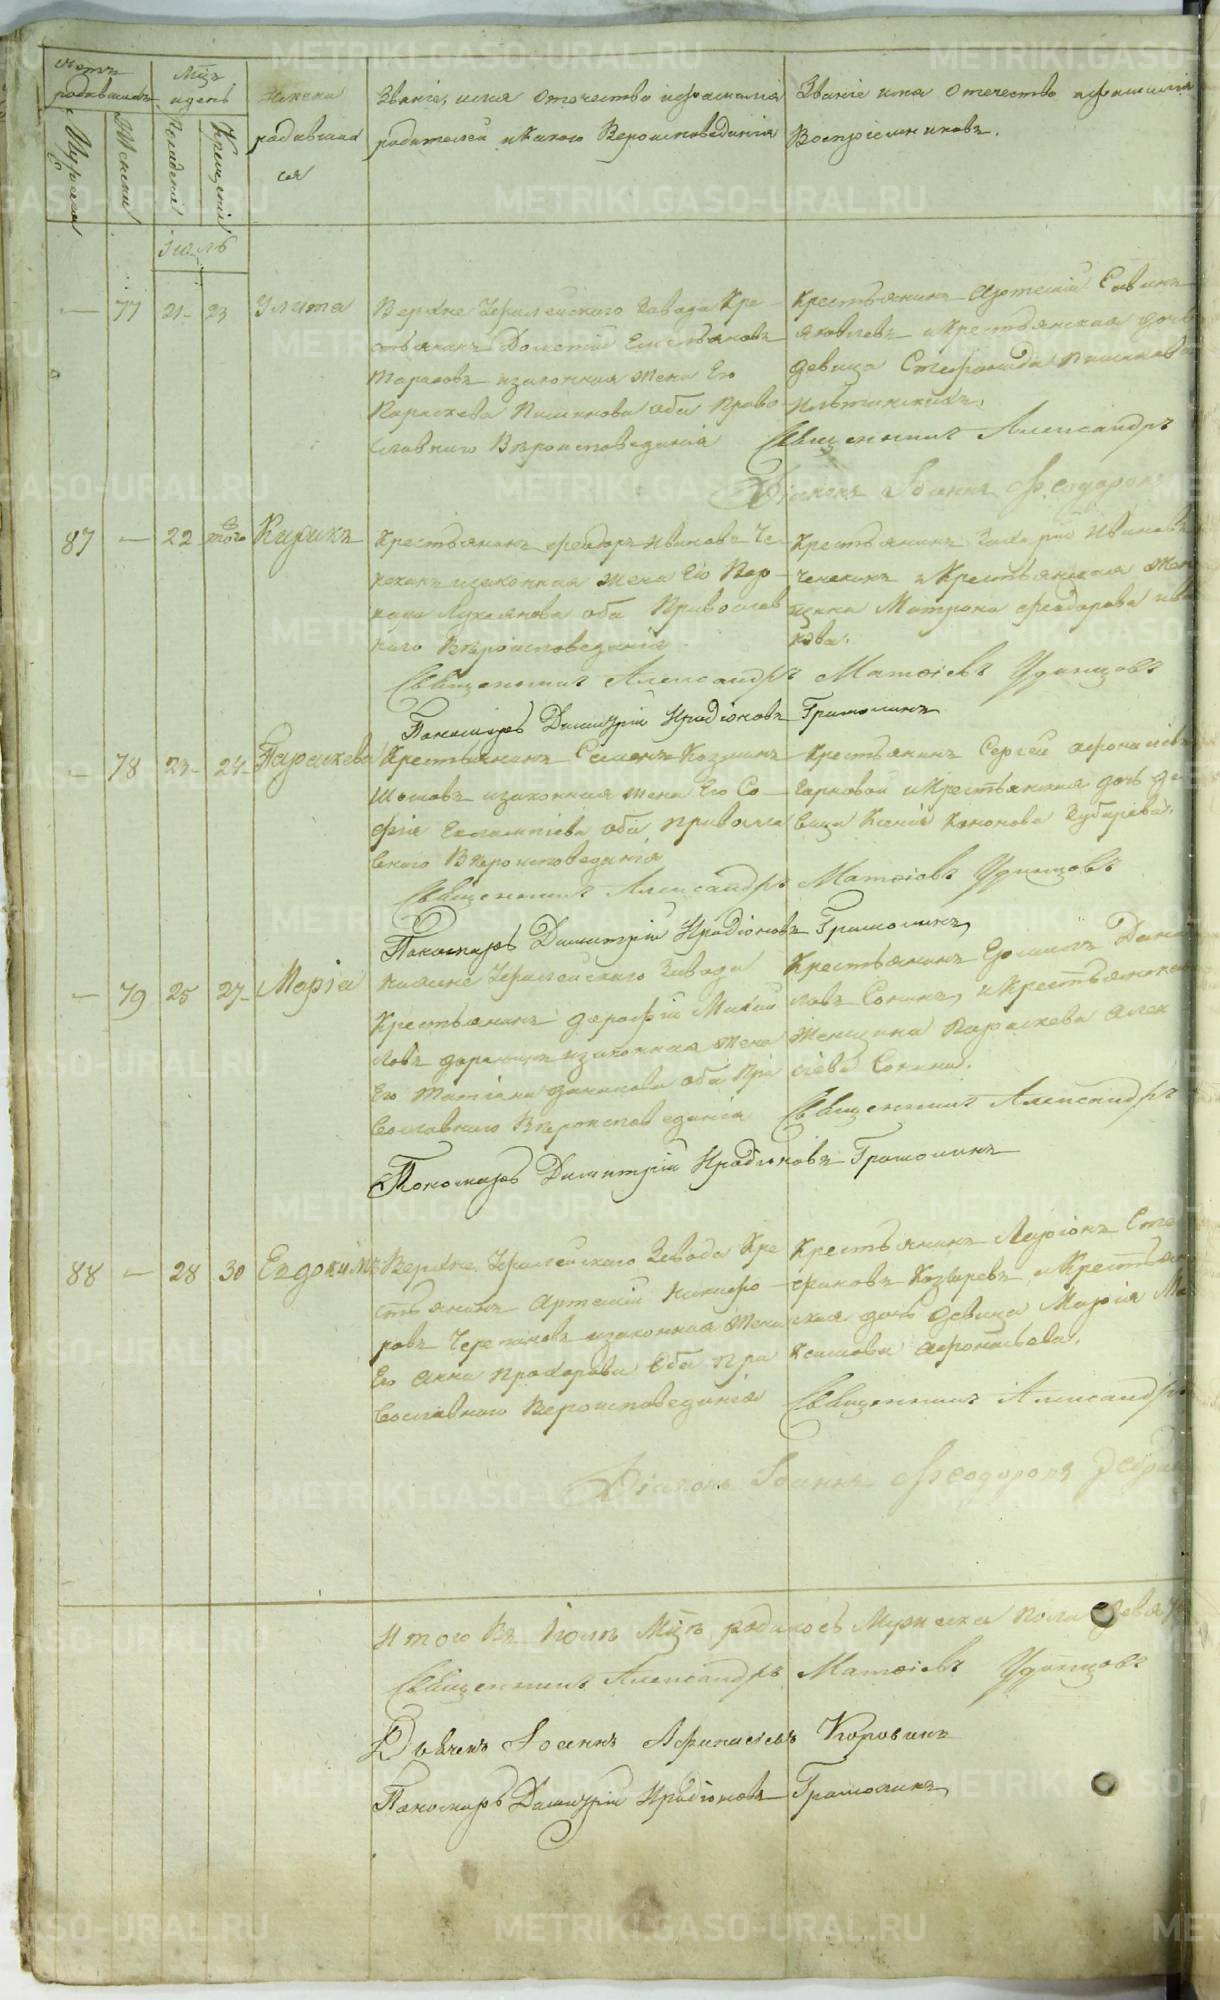 Счетъ родившихся
Мужеска
Женска
Мцъ и день
Рожденія
Крещенія
Имена
родивших
ся
Званіе, имя Отечество ифамилія
родителей икакого Вероисповеданія
Званіе имя Отечество ифамилія
Воспріемниковъ.
Іюль
— 77 21 23 Улита
Верхне Уфалейскаго Завода Кре
стьянинъ Дометій Емельяновъ
Тарасовъ изаконная жена Его
Параскева Пименова оба Право
славнаго Вѣроисповеданія
Крестьянинъ Савинъ
Яковлевъ иКрестьянская дочь
девица Стефанида
Священникъ Александръ
Діаконъ Іоаннъ Феодоровъ
87 — 22 того Кирикъ
Крестьянинъ Феодоръ Ивановъ Че
изаконная жена Его Вар
вара Лукьянова оба Православ
наго Вѣроисповеданія
Крестьянинъ Захарій Ивановъ
иКрестьянская Жен
щина Матрона Феодорова
Священникъ Александръ Матѳіевъ Удинцовъ
Пономарь Димитрій Иродіоновъ Грамолинъ
— 78 23 24 Параскева
Крестьянинъ Семенъ Козминъ
изаконная жена Его Со
фія Евлампіева оба правосла
внаго Вѣроисповеданія
Крестьянинъ Сергей Афонасіевъ
иКрестьянская дочь де
вица Ксенія Кононова Зубарева.
Священникъ Александръ Матѳіевъ Удинцовъ
Пономарь Димитрій Иродіоновъ Грамолинъ
— 79 25 27 Марія
Нижне Уфалейскаго Завода
Крестьянинъ Дорофій Михаи
ловъ изаконная жена
Его Татіана оба Пра
вославнаго Вѣроисповеданія
Крестьянинъ Ермилъ Дани
ловъ Сонинъ, иКрестьянская
Женщина Параскева Алек
сіева Сонина.
Священникъ Александръ
Пономарь Димитрій Иродіоновъ Грамолинъ
88 — 28 30 Евдокимъ
Верхне Уфалейскаго Завода Кре
стьянинъ Артемій Никифо
ровъ Черепановъ изаконная жена
Его Анна Прохорова Оба Пра
вославнаго Вероисповеданія
Крестьянинъ Ларіонъ Сте
фановъ Козыревъ, иКрестьян
ская дочь девица Марія Ма
ксимова Афонасьева.
Священникъ Александръ
Діаконъ Іоаннъ Феодоровъ
Итого Въ Іюлѣ Мцѣ родилось Мужеска пола девять
Священникъ Александръ Матѳіевъ Удинцовъ
Дьячекъ Іоаннъ Афанасіевъ Коровинъ
Пономарь Димитрій Иродіоновъ Грамолинъ
METRIKI.GASO-URAL.RU